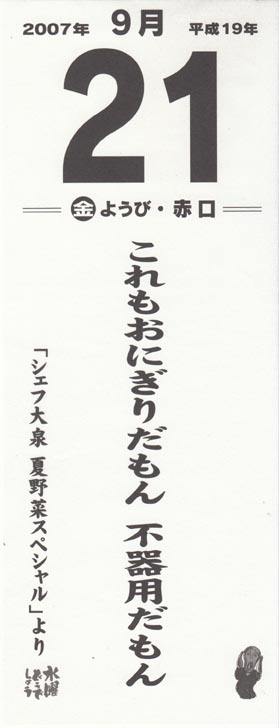 2007年 9月 平成19年
21
金ようび・赤口
これもおにぎりだもん 不器用だもん
「シェフ大泉 夏野菜スペシャル」より
水曜
どうで
しょう